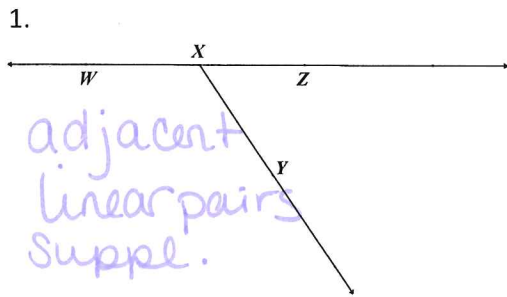 1.
X
W Z
adjacent
Y
linear pairs
suppl.